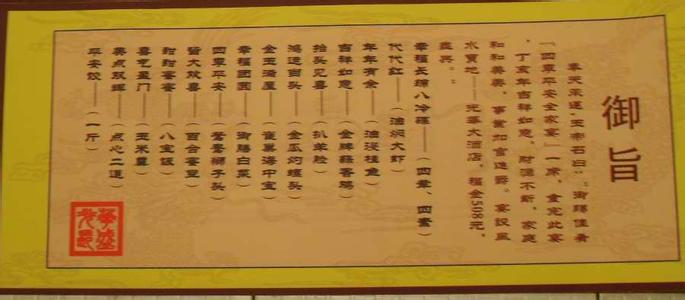 御旨
奉天承运，玉帝召曰：“御赐佳肴
“四覃平安全家宴”一席，食完此宴
，丁亥年吉祥如意，财源不断，家庭
和和美美，事业如官进爵。宴设风
水宝地——光华大酒店，福金508元。
盛典。
幸福长绵八冷碟——（四荤、四素）
代代红——（油焖大虾）
年年有余——（油浸桂鱼）
吉祥如意——（金牌蒜香鸡）
抬头见喜——（扒羊脸）
鸿运当头——（金瓜灼螺头）
金玉满屋——（雀巢海中宝）
幸福团圆——（御膳白菜）
四覃平安——（鸳鸯狮子头）
皆大欢喜——（百合蜜豆）
甜甜蜜蜜——（八宝饭）
喜气盈门——（玉米羹）
美点双辉——（点心二道）
平安饺——（一斤）